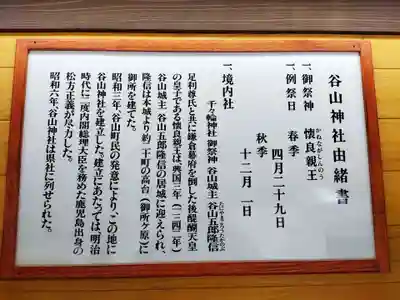 谷山神社由緒書
一、御祭神 懐良親王
かねながしんのう
一、例祭日 春季 四月二十九日
秋季 十二月一日
一、境内社
千々輪神社 御祭神 谷山城主 谷山五郎隆信
足利尊氏と共に鎌倉幕府を倒した後醍醐天皇
の皇子である懐良親王は、興国三年(一三四二年)
谷山城主 谷山五郎隆信の居城に迎えられ、
隆信は本城より約二十町の高台(御所ヶ原)に
御所を建てた。
昭和三年、谷山町民の発意により、この地に
谷山神社を建立した。建立にあたっては、明治
時代に二度内閣総理大臣を務めた鹿児島出身の
松方正義が尽力した。
昭和六年、谷山神社は県社に列せられた。